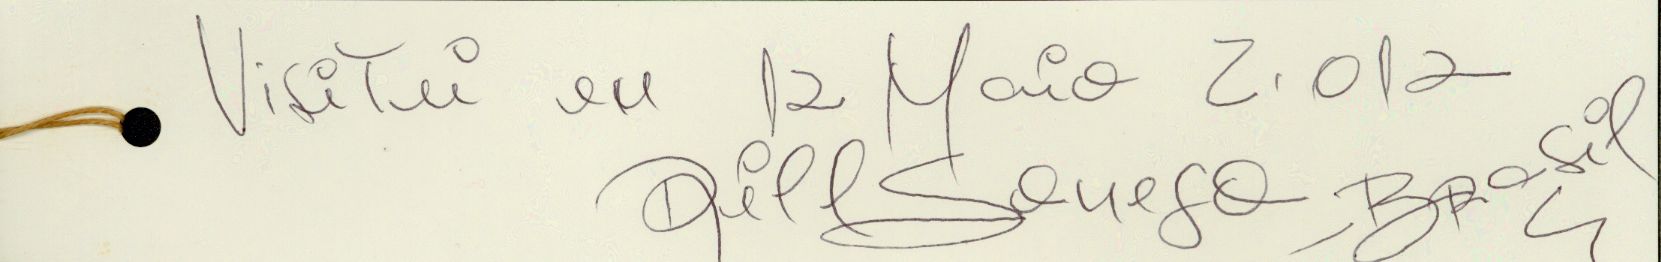 Visitei em 12 Maio 2.012
Dill Sonego, Brasil